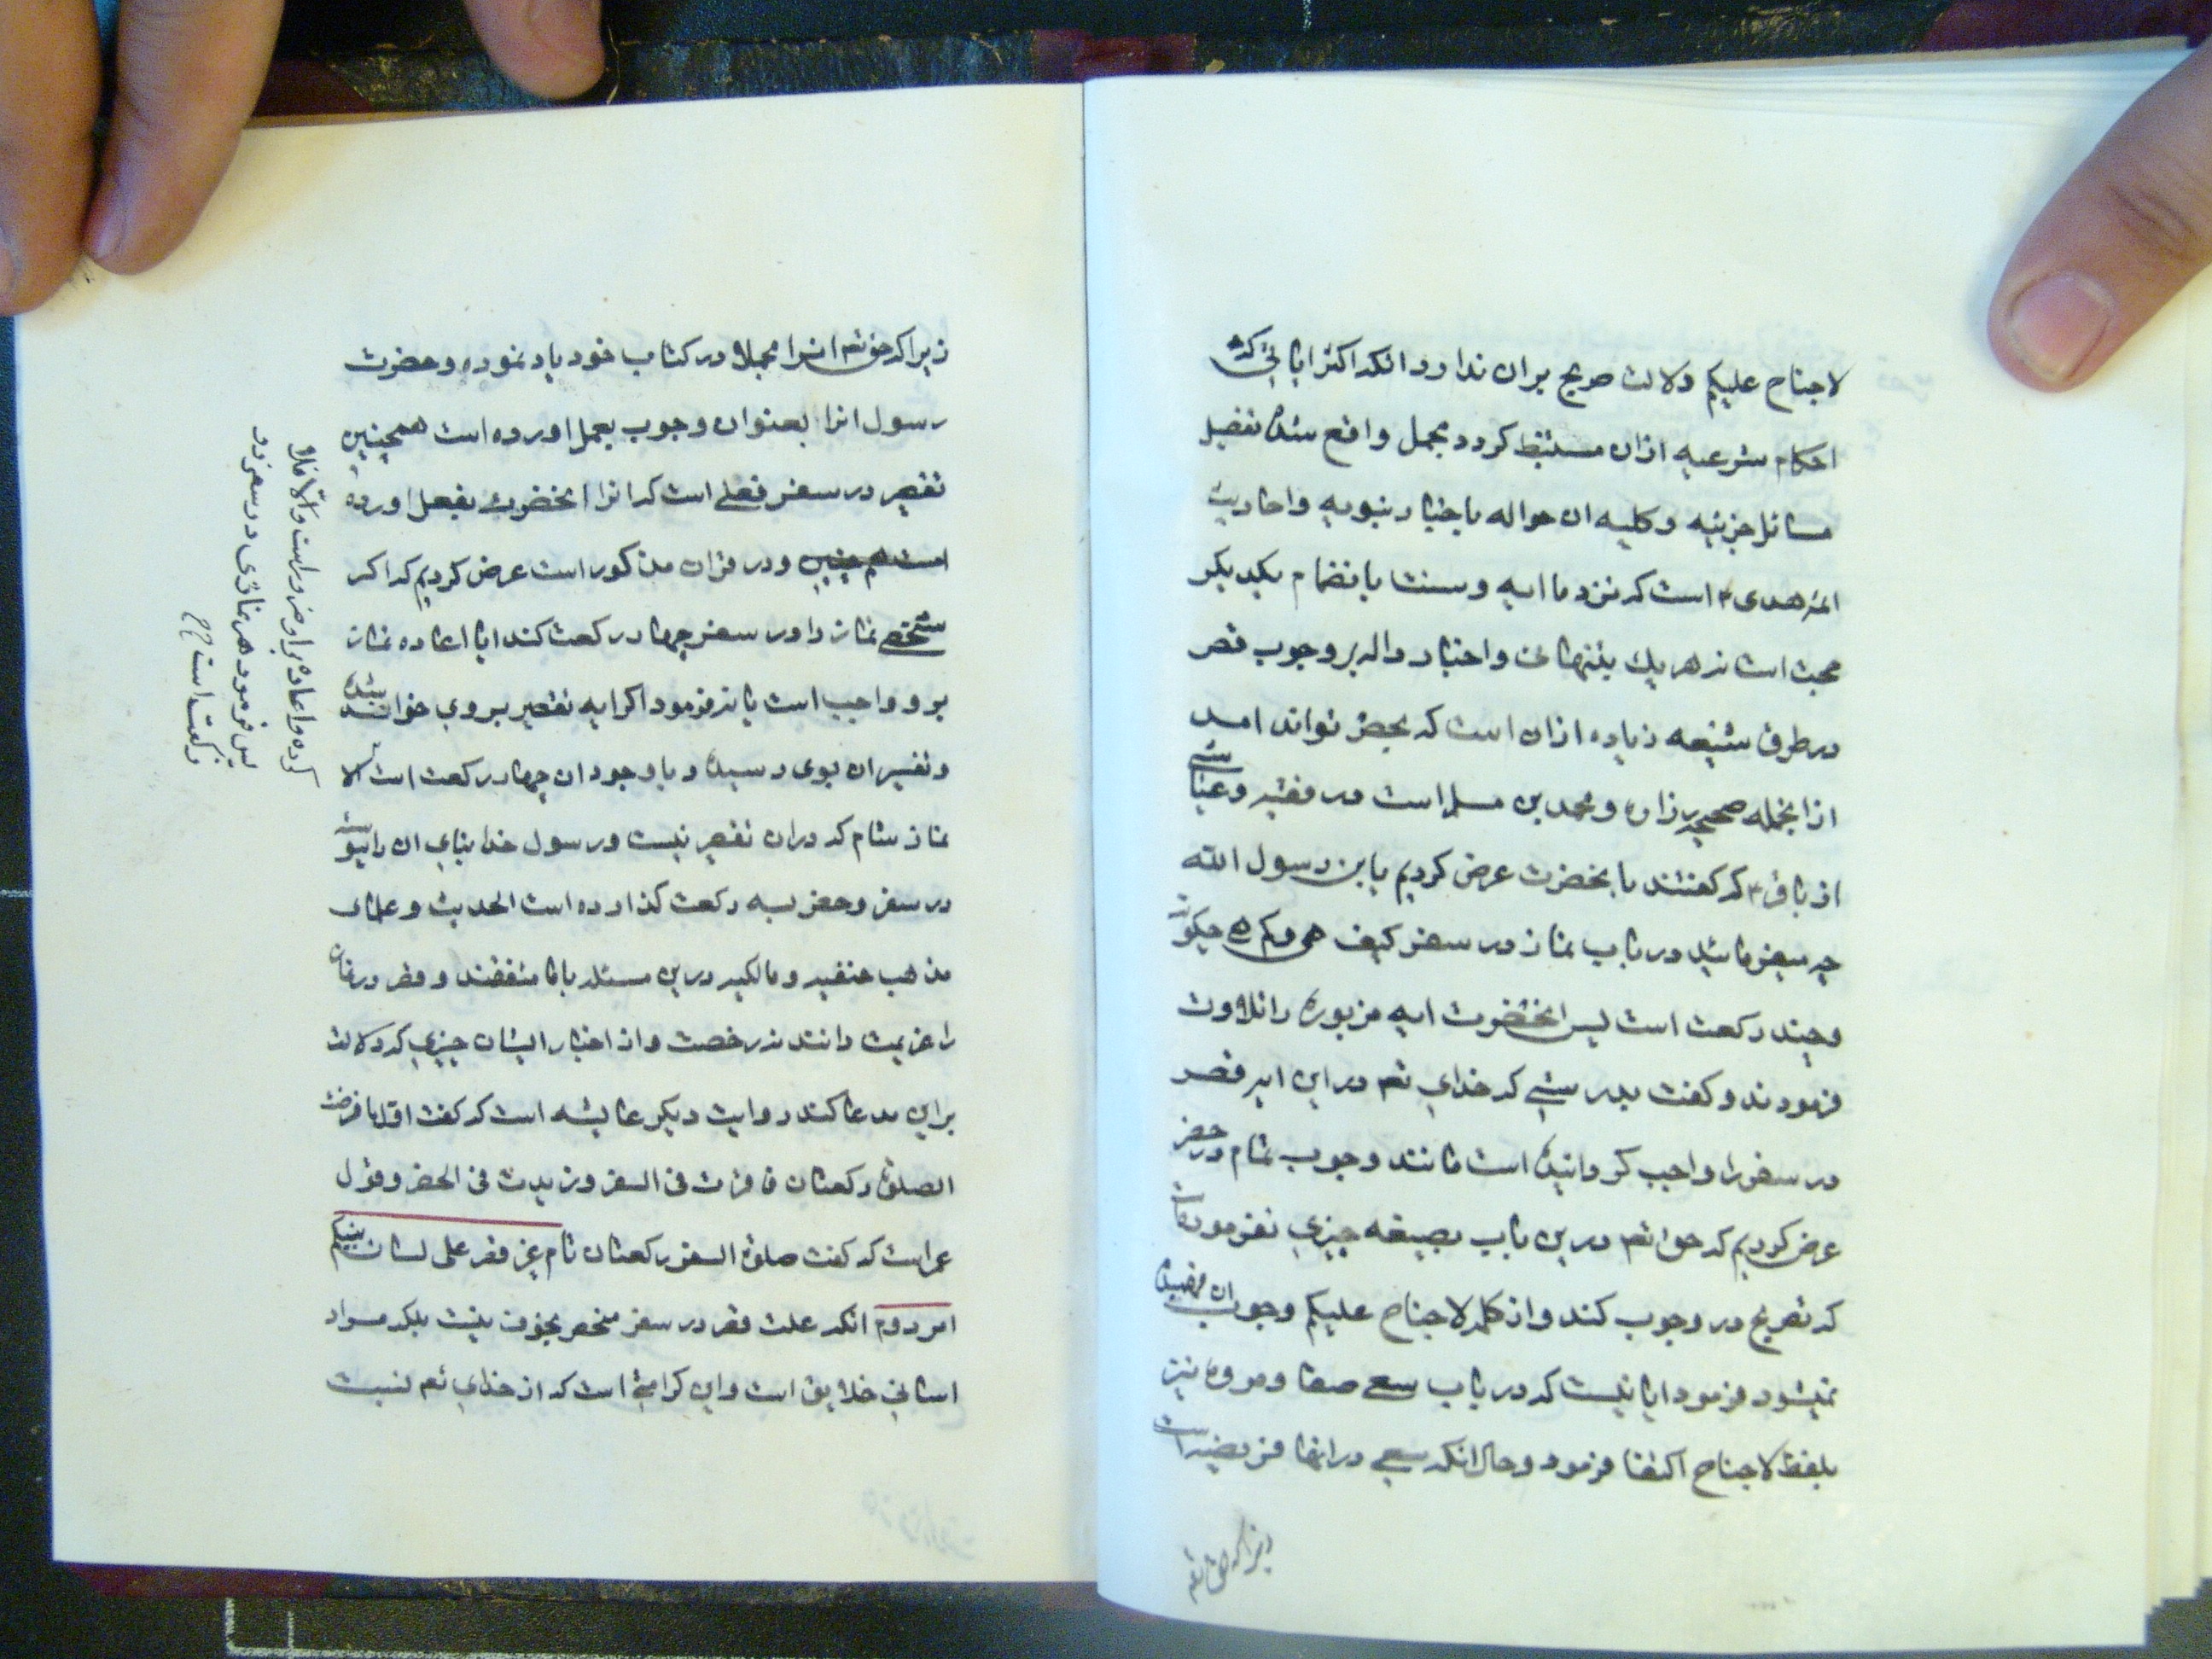 لاجناح علیکم دلالت صریح بران ندارد انکه اکثر ایاتی که
احکام شرعیه ازان مستنبط کردد مجمل واقع شده تفصیل
مسائل جزئیه و کلیه ان حواله باخبار نبویه و احادیث
ائمه هدی ۴ است که نزد ما ایه و سنت بانضمام یکدیکر
حجت است نه هریک بتنهائی و اخبار داله بر وجوب قصر
در طرق شیعه زیاده ازان است که بحصر تواند امد
ازانجمله صحیحه زراره و محمد بن مسلم است در فقیه و عیاشی
از باقر ۴ که کفتند بانحضرت عرض کردیم یابن رسول الله
چه میفرمائید در باب نماز در سفر کیف هی و کم هی چکونه
و چند رکعت است پس انحضرت ایه مزبوره را تلاوت
فرمودند و کفت بدرستی که خدای تعم در این ایه قصر
در سفر را واجب کردانیده است مانند وجوب تمام در حضر
عرض کردیم که حق تعم درین باب بصیغه چیزی نفرموده است
که تصریح در وجوب کند و از کلمه لاجناح علیکم وجوب ان فهمیده
نمیشود فرمود ایا نیست که در باب سعی صفا و مروه نیز
بلفظ لاجناح اکتفا فرمود و حال انکه سعی در انها فریضه است
زیرا که حق تعم
زیرا که حق تعم انرا مجملا در کتاب خود یاد نموده و حضرت
رسول انرا بعنوان وجوب بعمل اورده است همچنین
تقصیر در سفر فعلی است که انرا انحضرت بفعل اورده
است هم چنین و در قران مذکور است عرض کردیم که اکر
شخصی نماز را در سفر چهار رکعت کند ایا اعاده نماز
بر و واجب است یا نه فرمود اکر ایه تقصیر بروی خوانده شد
و تفسیر ان بوی رسیده و با وجود ان چهار رکعت است الا
نماز شام که دران تقصیر نیست و رسول خدا
در سفر و حضر سه رکعت کذارده است الحدیث و علمای
مذهب حنفیه و مالکیه درین مسئله باما متفقند و قصر در نماز
را عزیمت دانند نه رخصت و از اخبار ایشان چیزی که دلالت
براین مدعا کند روایت دیکر عایشه است که کفت اول ما فرضت
الصلوة رکعتان فاقرت فی السفر و زیدت فی الحضر و قول
عمر است که کفت صلوة السفر رکعتان تام غیر قصر علی لسان نبیکم
امر دوم انکه علت قصر در سفر منحصر بخوف نیست بلکه مراد
اسانی خلایق است و این کرامتی است که از خدای تعم نسبت
کرده و اعاده براو ضرور است و الا فلا
پس فرمود هر نمازی در سفر دو
رکعت است